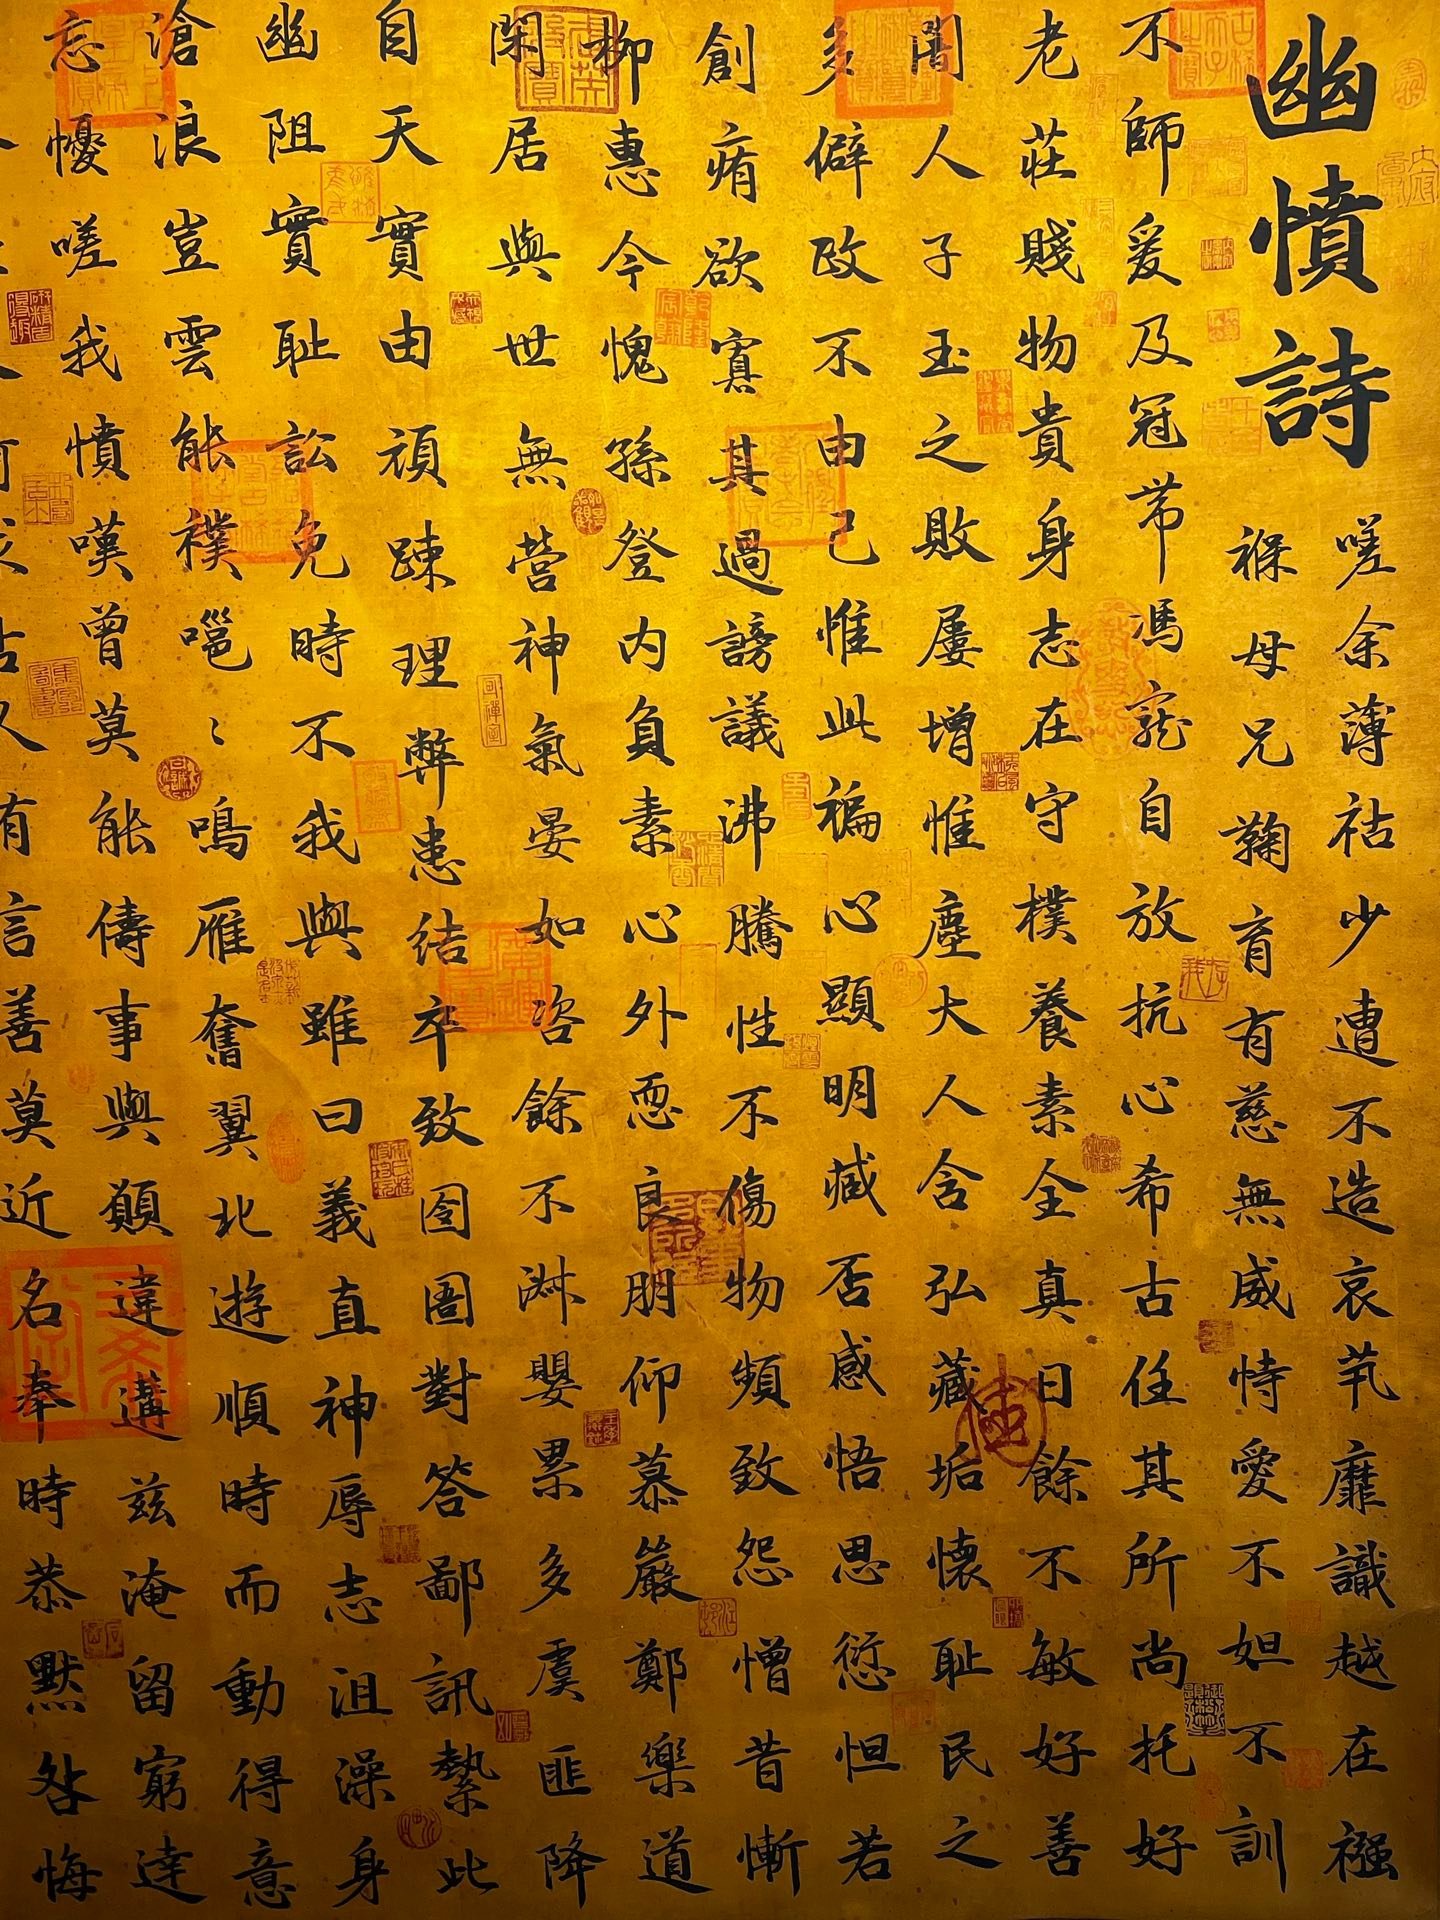 幽憤詩
嗟余薄祜少遭不造哀茕靡識越在襁
褓母兄鞠育有慈無威恃愛不妲不訓
不師爰及冠帶馮寵自放抗心希古任其所尚托好
老莊賤物貴身志在守樸養素全真曰餘不敏好善
闇人子玉之敗屢增惟塵大人含弘藏垢懷恥民之
多僻政不由己惟此褊心顯明臧否感悟思愆怛若
創痏欲寡其過謗議沸騰性不傷物頻致怨憎昔慚
柳惠今愧孫登内負素心外恧良朋仰慕嚴鄭樂道
閑居與世無營神氣晏如咨餘不淑嬰累多虞匪降
自天實由頑疎理弊患結卒致囹圄對答鄙訊縶此
幽阻實恥訟免時不我與雖曰義直神辱志沮澡身
滄浪豈雲能襆嗈〻鳴雁奮翼北遊順時而動得意
忘懮嗟我憤嘆曾莫能儔事與願違遘茲淹留窮達
有言善莫近名奉時恭默咎悔